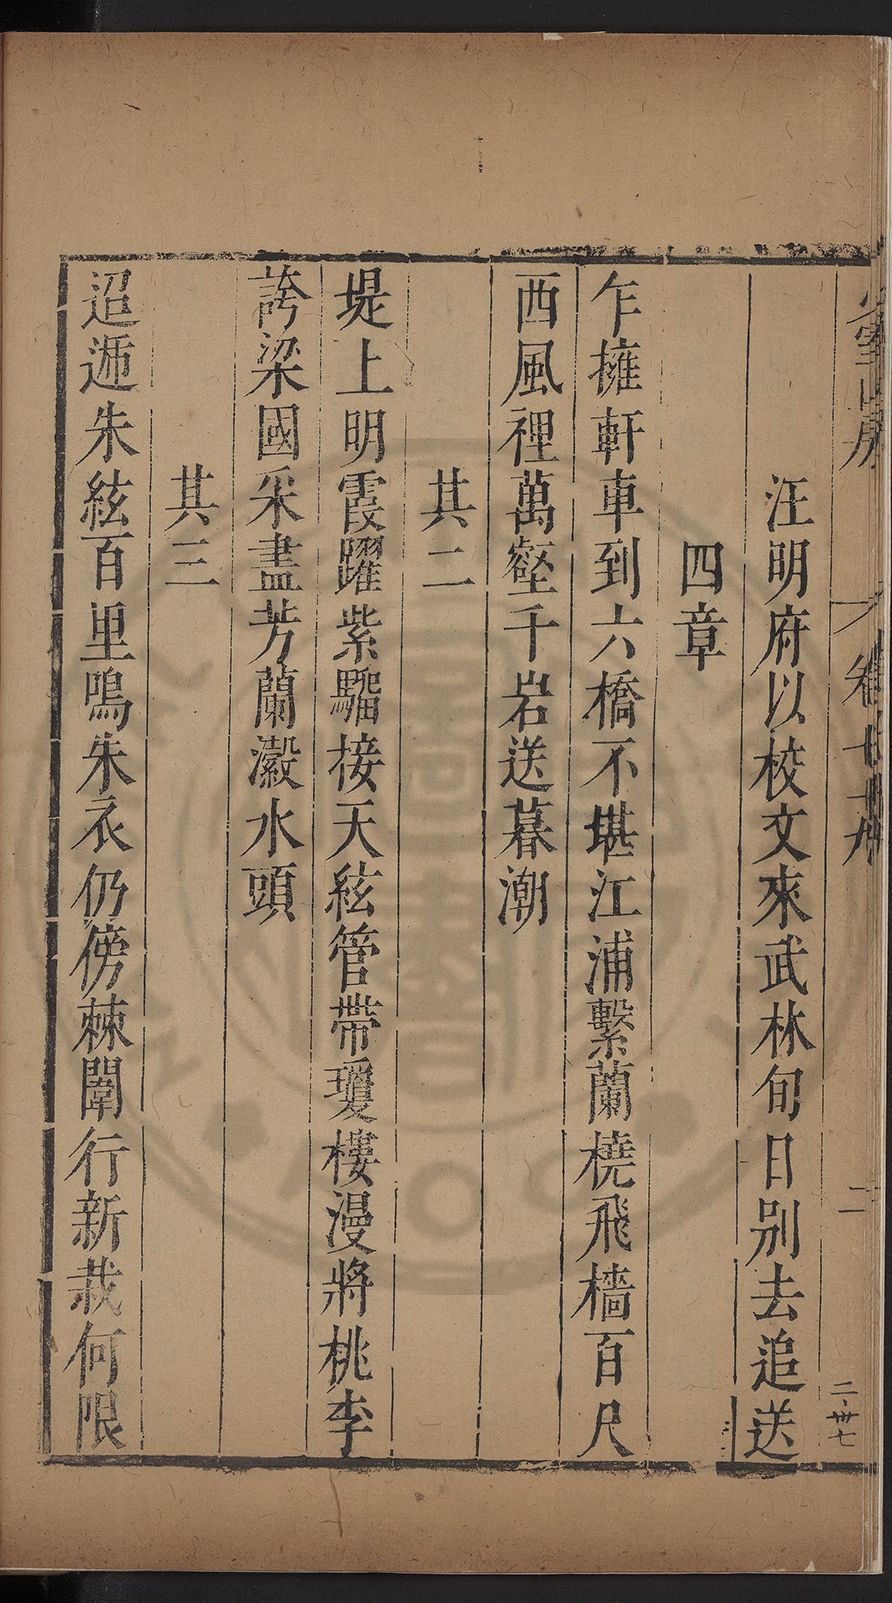 汪明府以校文來武林旬日別去追送
四章
乍擁軒車到六橋不堪江浦繫蘭橈飛檣百尺
西風裡萬壑千岩送暮潮
其二
堤上明霞躍紫騮接天絃管帶瓊樓漫將桃李
誇梁國采盡芳蘭瀫水頭
其三
迢遞朱絃百里鳴朱衣仍傍棘闈行新栽何限
卷七十
二
二·卅七